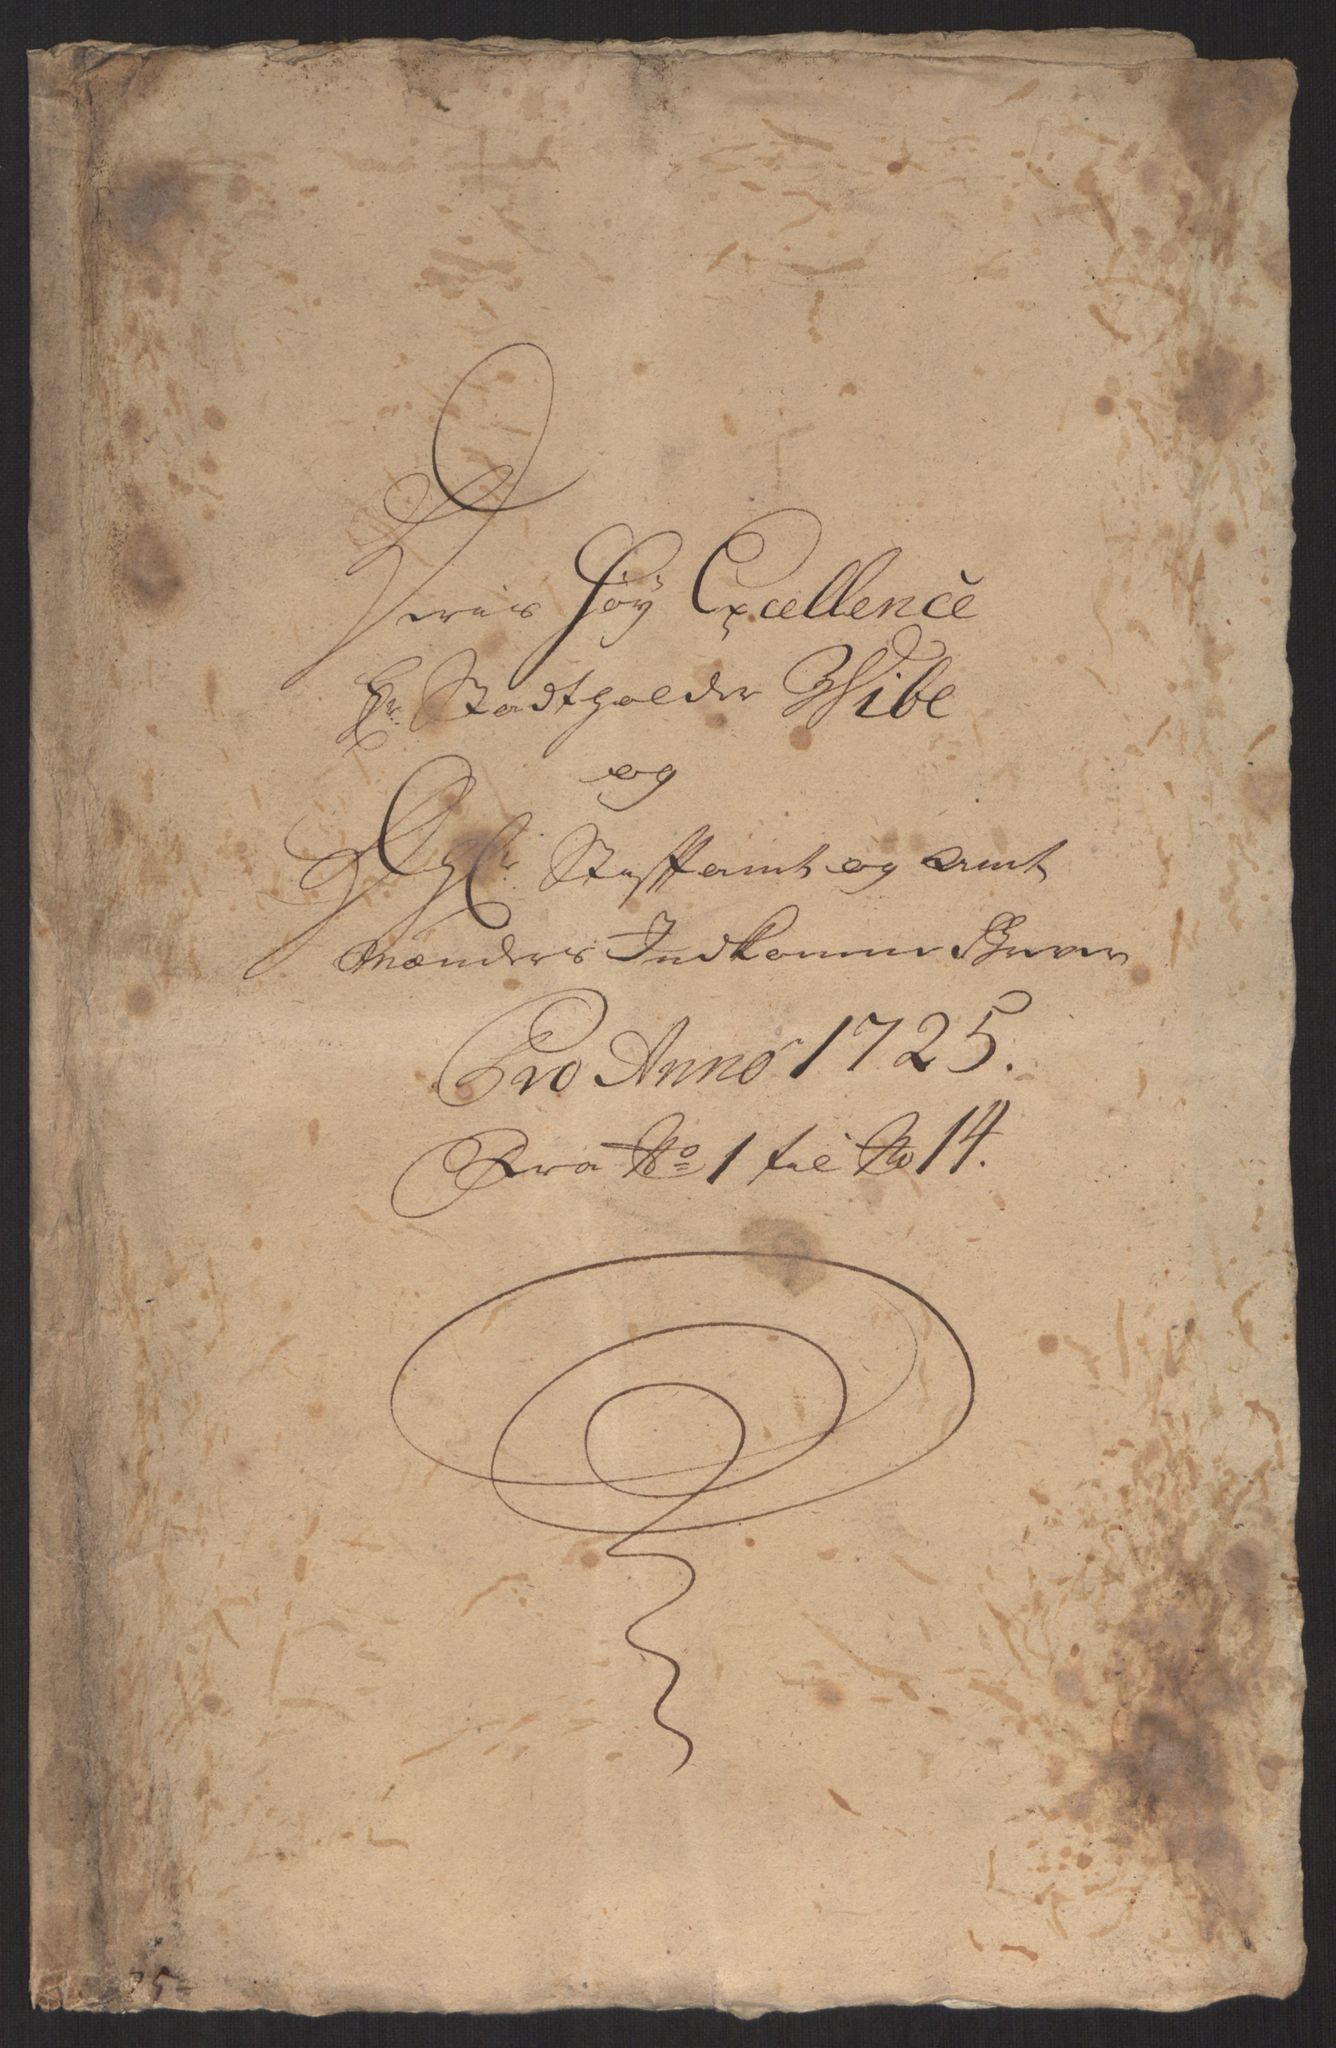 Deris Høy Excellence
Hr: Stadtholder Wibe
og
Stifftamt og Amt
Mænders Indkomne Brever
Pro Anno 1725.
Fra No 1 til No 14.